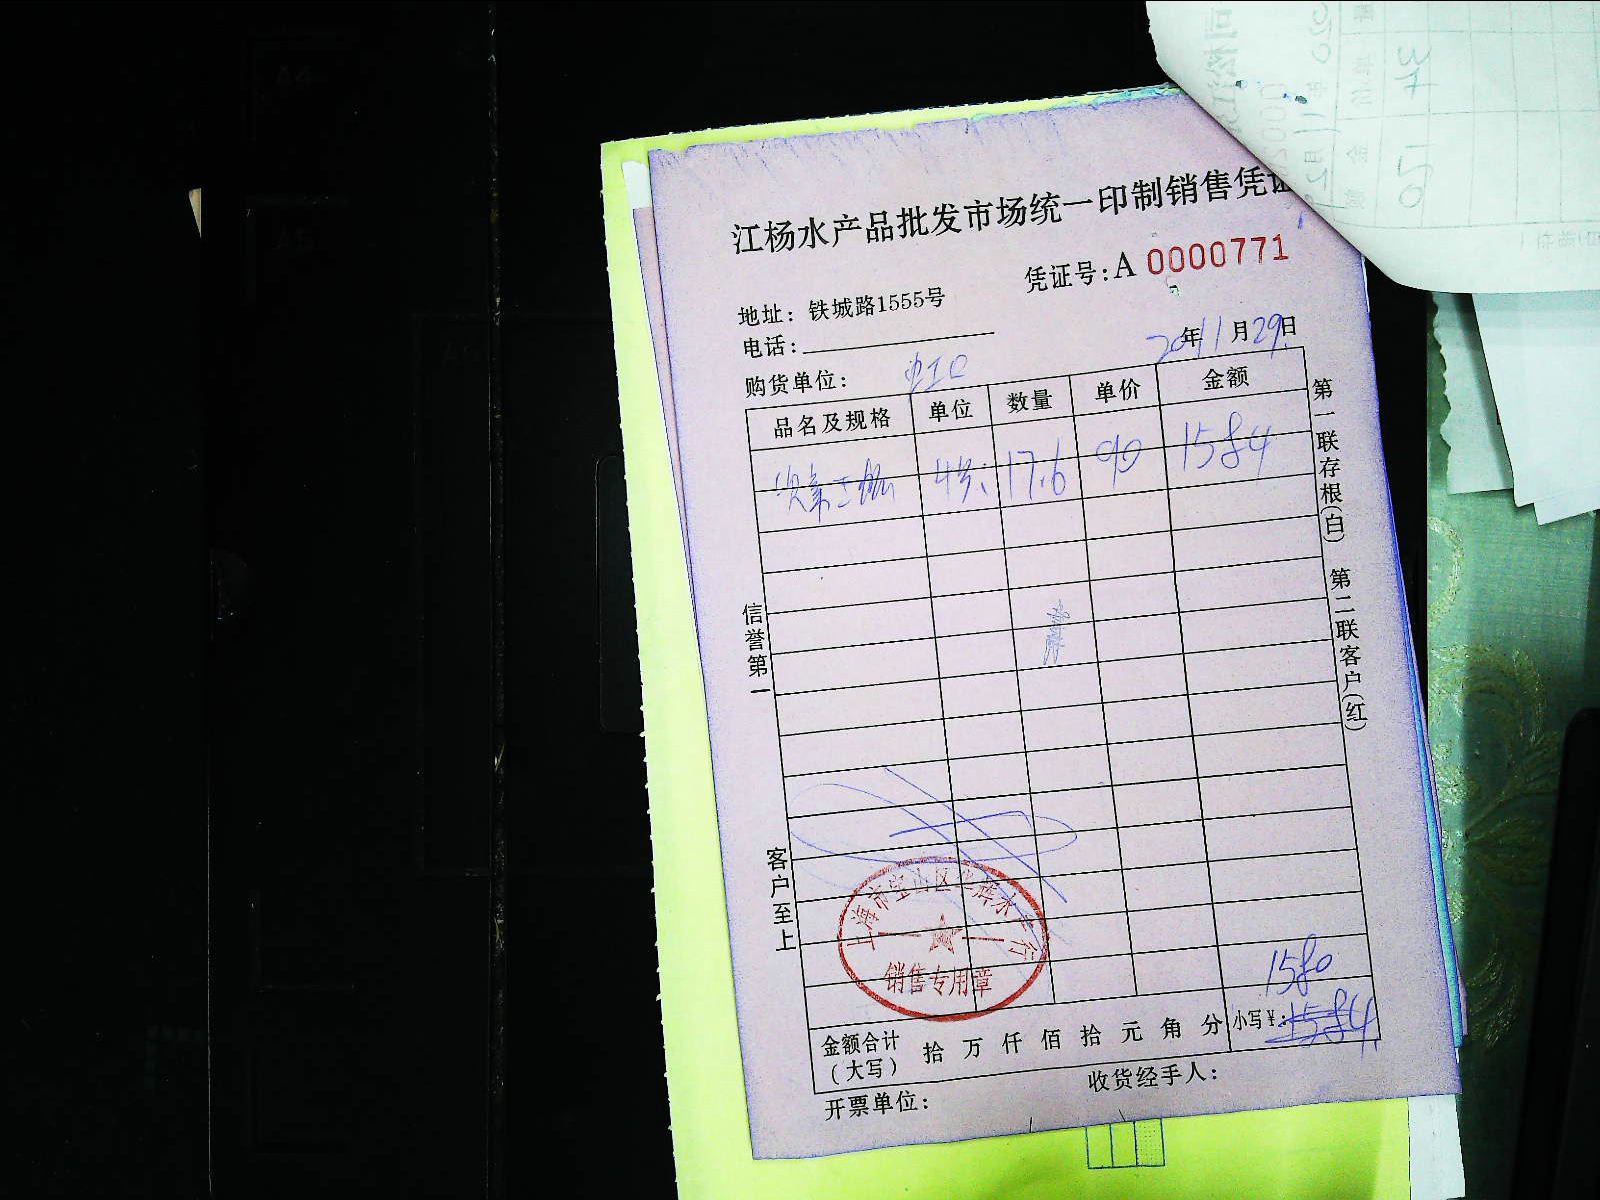 江杨水产品批发市场统一印制销售凭证
凭证号:A 0000771
地址：铁城路1555号
电话：
年11月29日
购货单位： 虹口
品名及规格 单位 数量 单价 金额
17.6 90 1584
第一联存根(白) 第二联客户(红)
信誉第一
客户至上
销售专用章
1580
金额合计(大写) 拾 万 仟 佰 拾 元 角 分 小写¥: 1584
开票单位：
收货经手人：